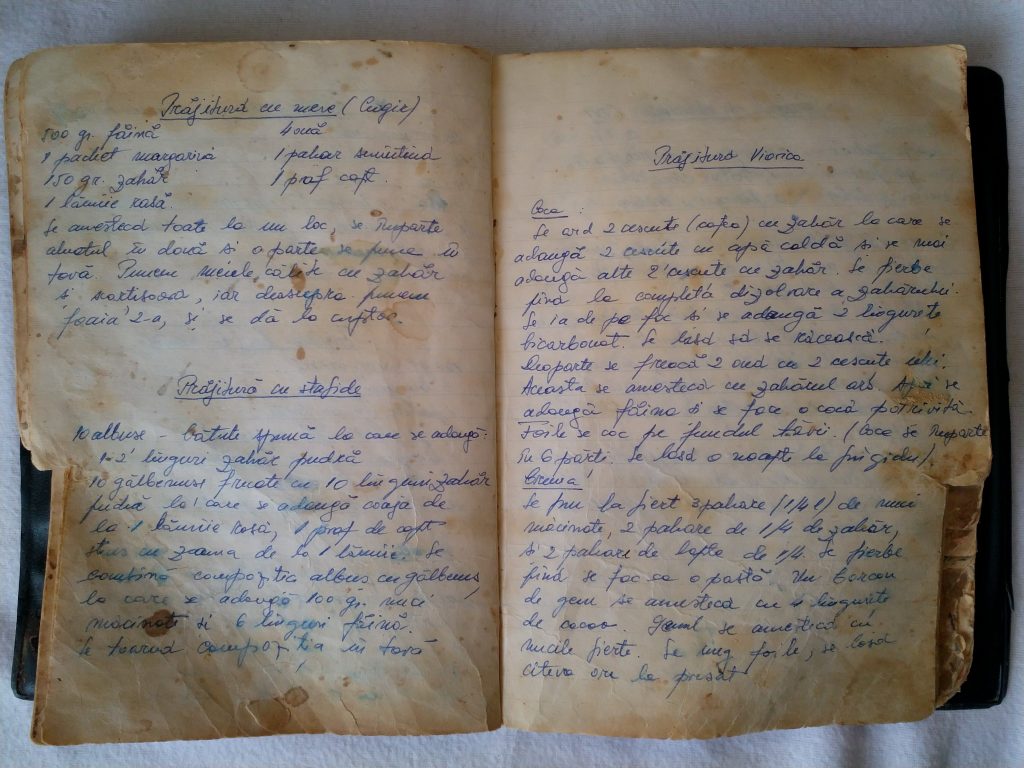 Prăjitură cu mere (Cugir)
500 gr. făină
4 ouă
1 pachet margarină
1 pahar smîntînă
150 gr. zahăr
1 praf copt.
1 lămîie rasă.
Se amestecă toate la un loc, se împarte
aluatul în două si o parte se pune în
tavă. Punem merele călite cu zahăr
si scortisoară, iar deasupra punem
foaia 2-a, și se dă la cuptor.
Prăjitură cu stafide
10 albuse - bătute spumă la care se adaugă:
1-2 linguri zahăr pudră
10 gălbenuse frecate cu 10 linguri zahăr
pudră la care se adaugă coaja de
la 1 lămîie rasă, 1 praf de copt
stins cu zeama de la 1 lămîie. Se
combină compoziția albus cu gălbenus,
la care se adaugă 100 gr. nuci
măcinate si 6 linguri făină.
Se toarnă compoziția în tavă
Prăjitură Viorica
Coca:
Se ard 2 cescute (cafea) cu zahăr la care se
adaugă 2 cescute cu apă caldă și se mai
adaugă alte 2 cescute cu zahăr. Se fierbe
pînă la completa dizolvare a zahărului.
Se ia de pe foc si se adaugă 2 lingurițe
bicarbonat. Se lasă să se răcească.
Deoparte se freacă 2 ouă cu 2 cescute ulei.
Aceasta se amestecă cu zahărul ars. Apoi se
adaugă făina si se face o cocă potrivită
Foile se coc pe fundul tăvii. (Coca se împarte
în 6 părți. Se lasă o noapte la frigider)
Crema
Se pun la fiert 3 pahare (1/4 l) de nuci
măcinate, 2 pahare de 1/4 de zahăr,
și 2 pahare de lapte de 1/4. Se fierbe
pînă se face ca o pastă. Un borcan
de gem se amestecă cu 4 lingurite
de cacao. Gemul se amestecă cu
nucile fierte. Se ung foile, se lasă
cîteva ore la presat